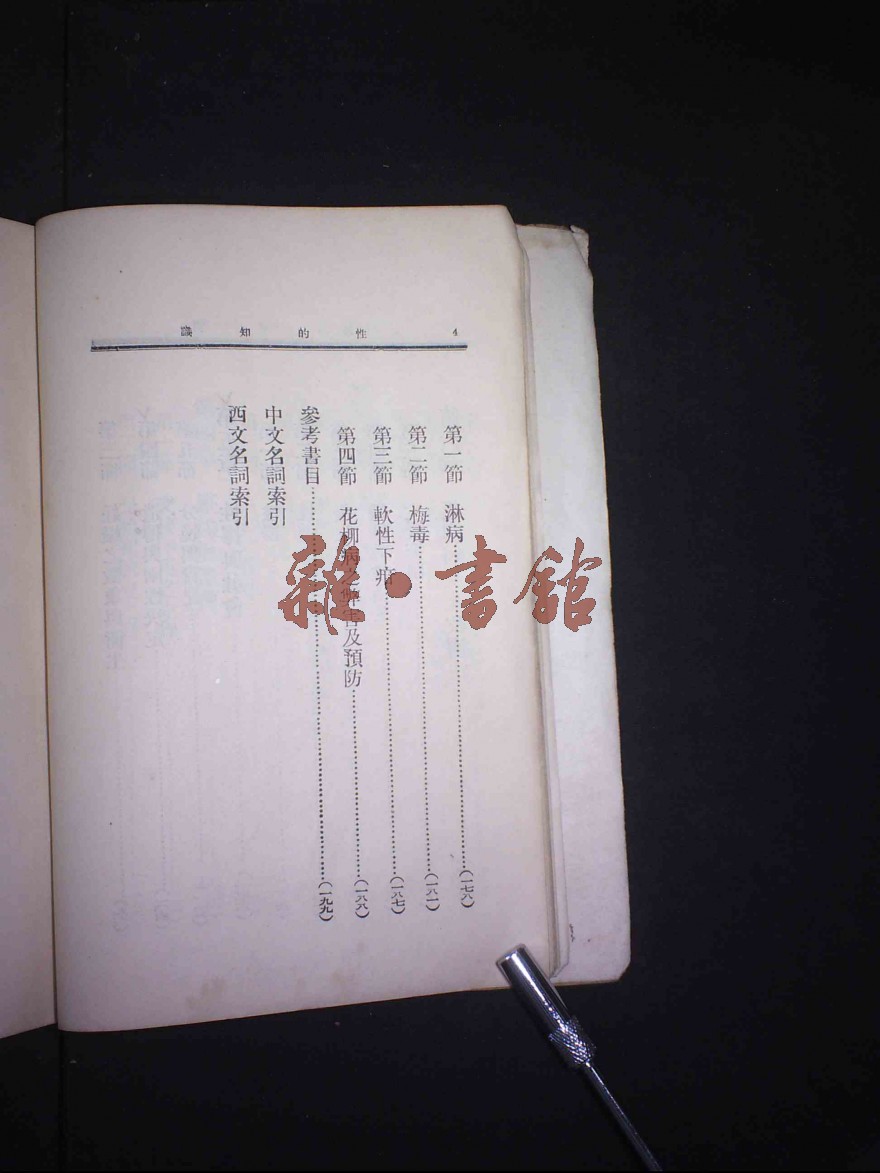 4 性的知識
第一節 淋病……(一七八)
第二節 梅毒……(一八一)
第三節 軟性下疳……(一八七)
第四節 花柳病之害及預防……(一八八)
參考書目……(一九九)
中文名詞索引
西文名詞索引
雜·書館